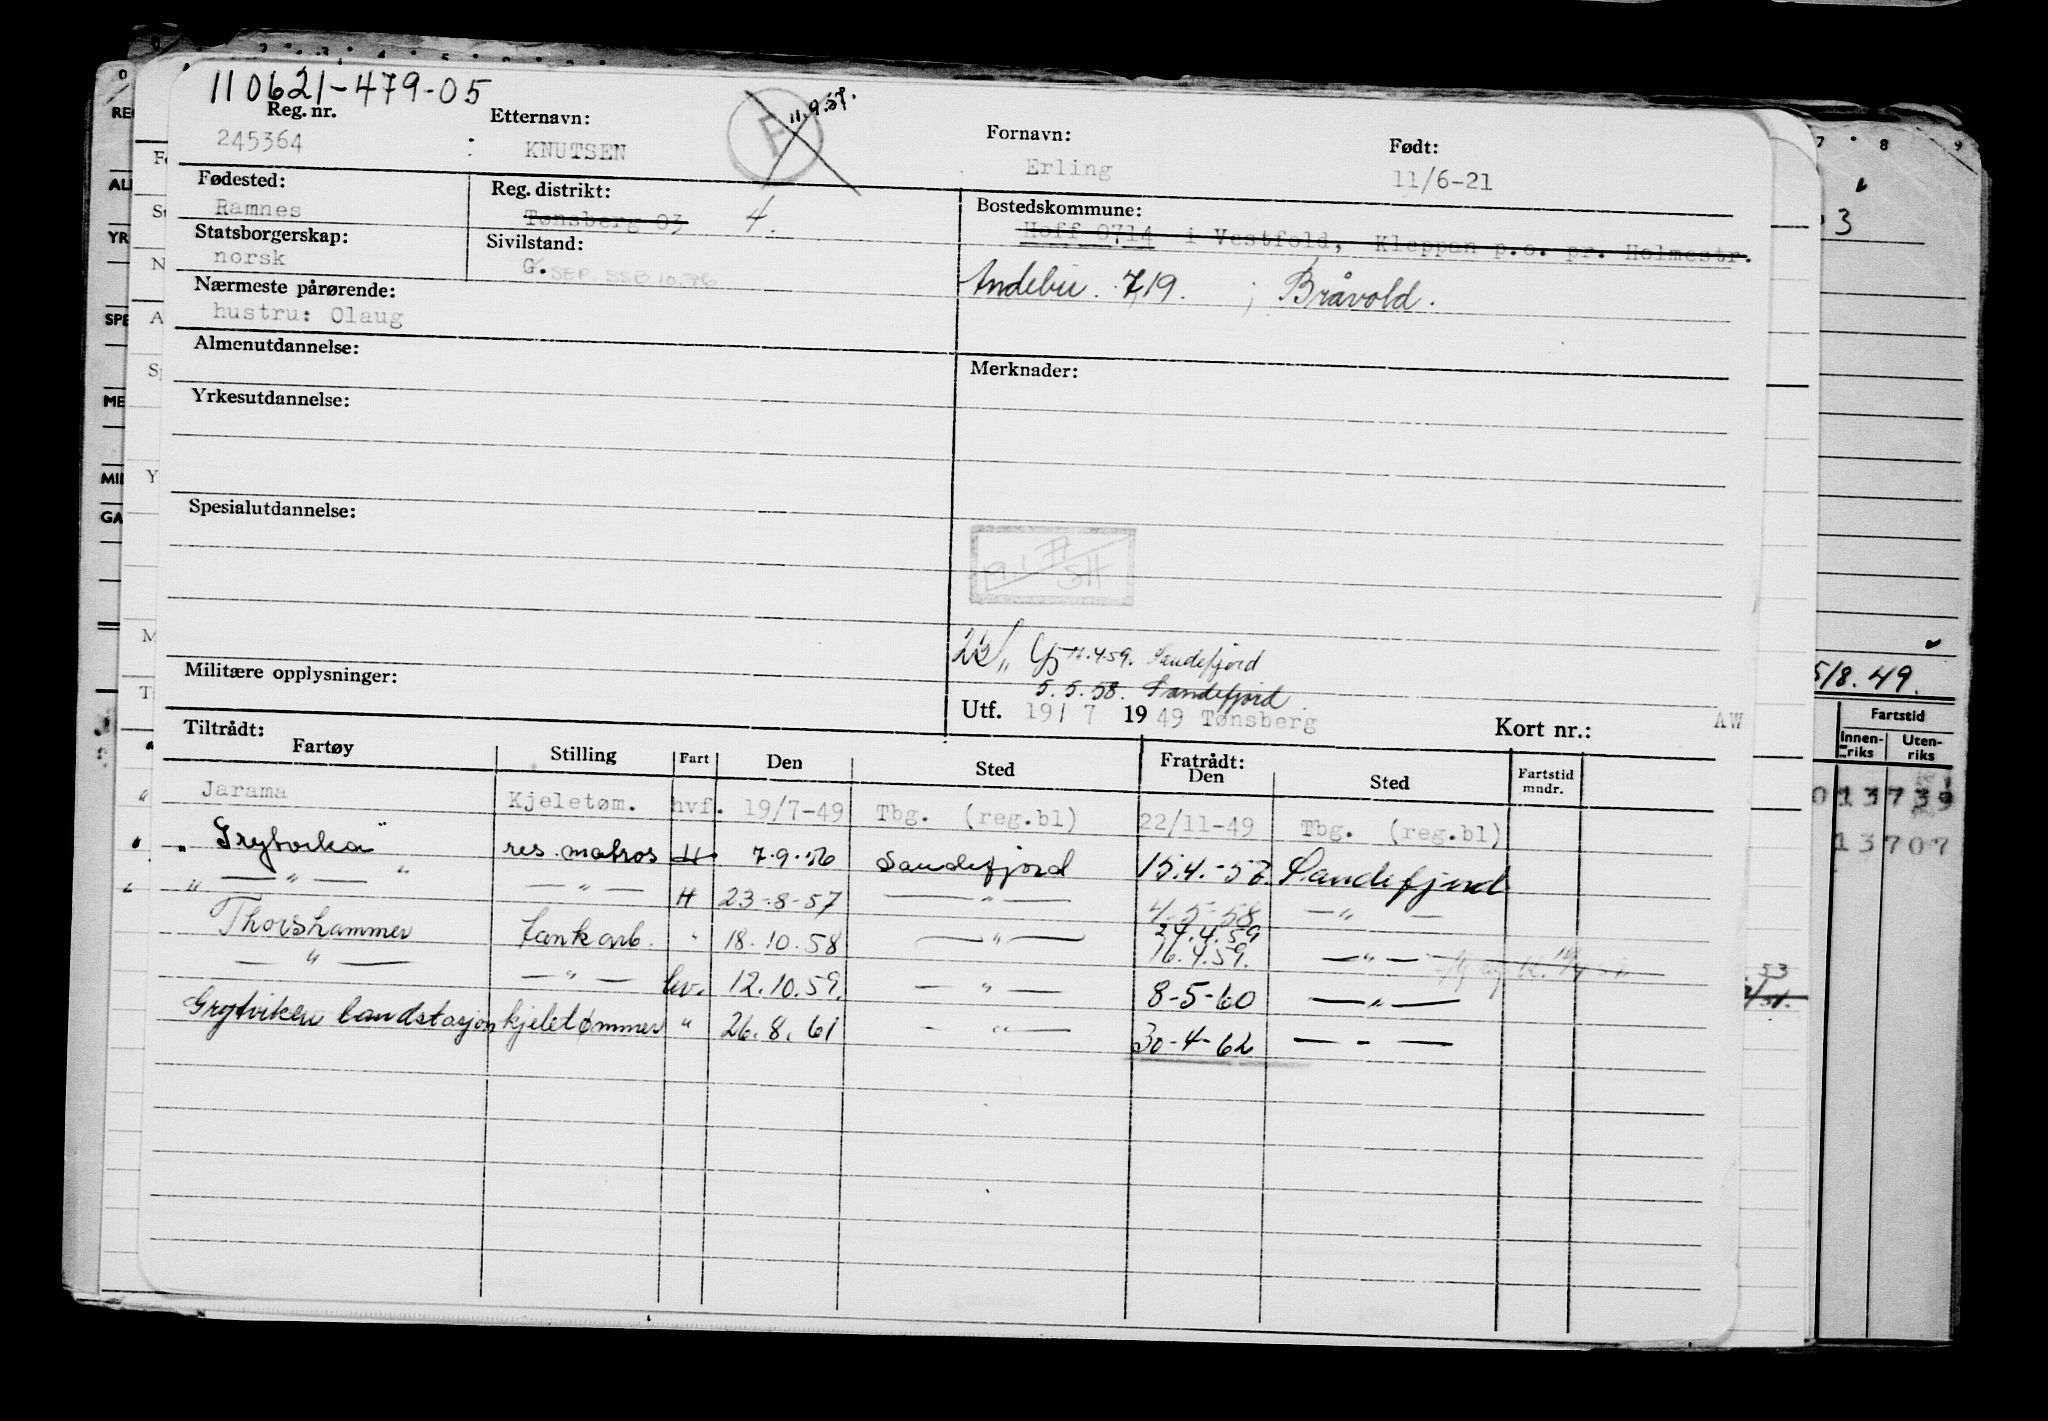 110621-479-05
Reg. nr. Etternavn: Fornavn: Født:
245364 KNUTSEN F 11.9.57. Erling 11/6-21
Fødested: Reg. distrikt: Bostedskommune:
Ramnes Tønsberg 03 4. Hoff 0714 i Vestfold, Kleppan p.o. pr. Holmestr.
Statsborgerskap: Sivilstand:
norsk G. SEP. SSB 10.76 Andebu 719. ; Bråvold.
Nærmeste pårørende:
hustru: Olaug
Almenutdannelse: Merknader:
Yrkesutdannelse:
Spesialutdannelse:
16.4.59. Sandefjord
Militære opplysninger: 5.5.58. Sandefjord.
Utf. 19/7 1949 Tønsberg Kort nr.: AW
Tiltrådt: Fratrådt:
Fartøy Stilling Fart Den Sted Den Sted Fartstid mndr.
Jarama Kjeletøm. hvf. 19/7-49 Tbg. (reg.bl) 22/11-49 Tbg. (reg.bl)
" Grytvika" res. matros H 7.9.56 Sandefjord 15.4.-57. Sandefjord
" — " — " — " — H 23-8-57 — " — 4-5-58 — " —
24.4.59
Thorshammer tankarb. " 18.10.58 — " — 16.4.59. — " —
— " — — " — hv. 12.10.59. — " — 8-5-60 — " —
Grytviken landstasjon kjeletømmer " 26.8.61 — " — 30-4-62 — - —
REG
AL
YR
SPE
ME
MIL
GA
3
5/8.49.
Fartstid
Innenriks Utenriks
13739
13707
53